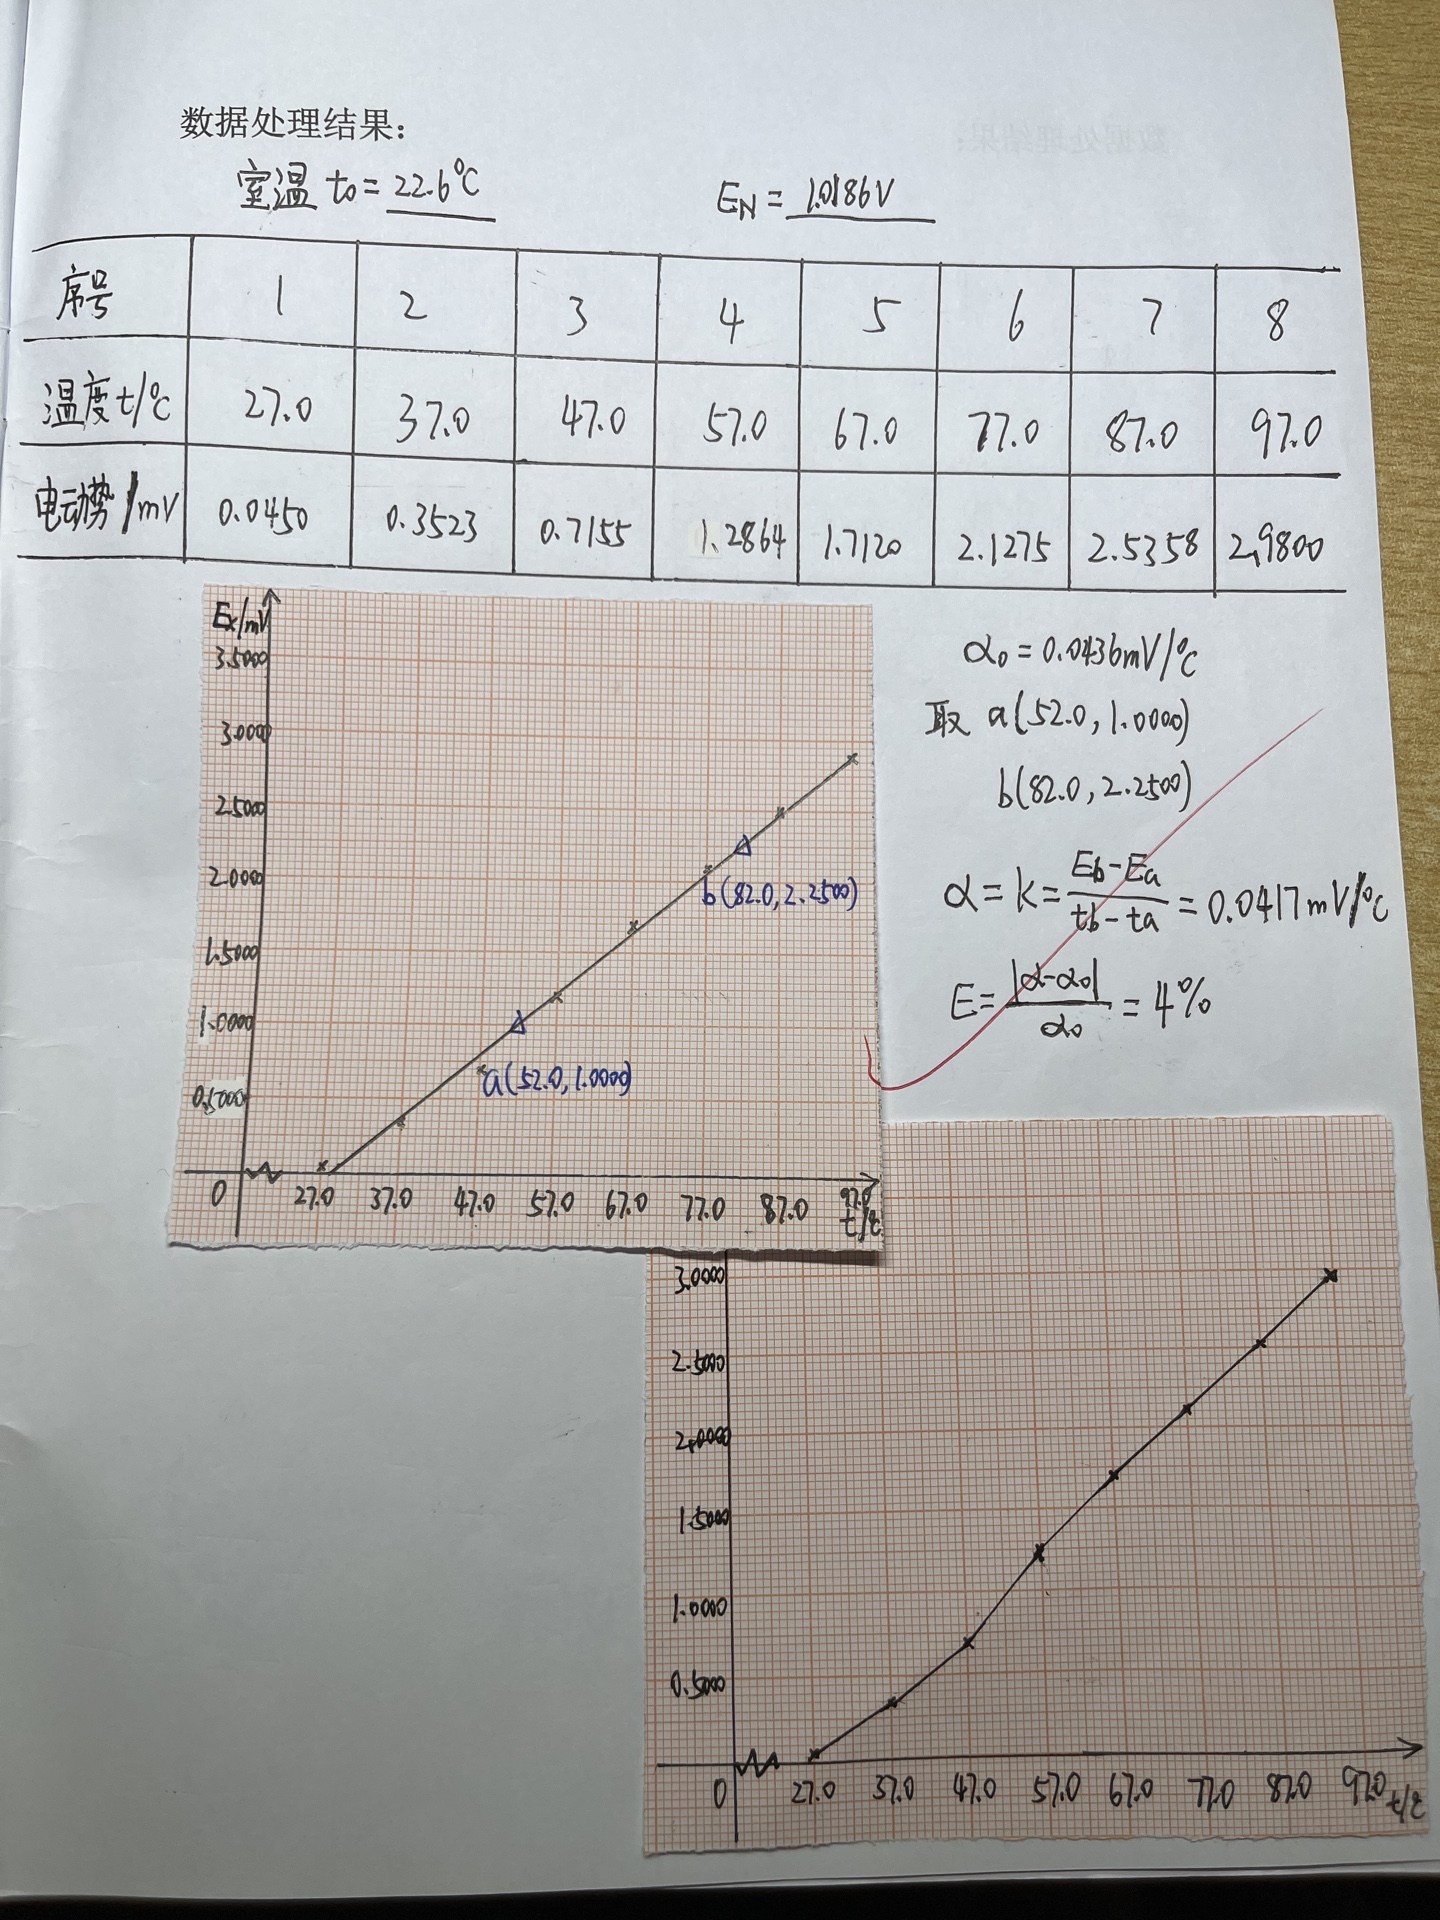 数据处理结果：
室温 t₀ = 22.6℃ E_N = 1.0186V
序号 1 2 3 4 5 6 7 8
温度 t/℃ 27.0 37.0 47.0 57.0 67.0 77.0 87.0 97.0
电动势/mV 0.0450 0.3523 0.7155 1.2864 1.7120 2.1275 2.5358 2.9800
Ex/mV
3.5000
3.0000
2.5000
2.0000
1.5000
1.0000
0.5000
0 27.0 37.0 47.0 57.0 67.0 77.0 87.0 97.0
t/℃
b(82.0, 2.2500)
a(52.0, 1.0000)
α₀ = 0.0436mV/℃
取 a(52.0, 1.0000)
b(82.0, 2.2500)
α = k = (Eb - Ea)/(tb - ta) = 0.0417mV/℃
E = |α-α₀|/α₀ = 4%
3.0000
2.5000
2.0000
1.5000
1.0000
0.5000
0 27.0 37.0 47.0 57.0 67.0 77.0 87.0 97.0 t/℃